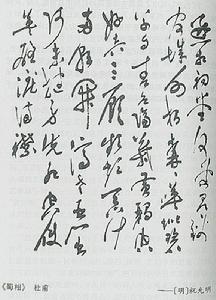 丞相祠堂何處尋錦
官城外柏森森映階碧
草自春色隔葉黃鸝空
好音三顧頻煩天下計
兩朝開濟老臣心出
師未捷身先死長使
英雄淚滿襟
《蜀相》 杜甫
——[明]祝允明